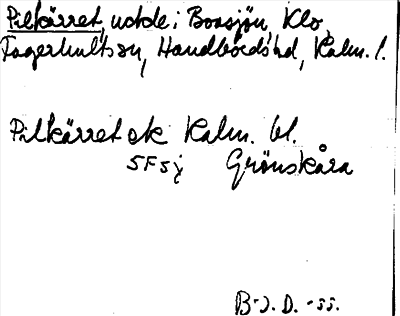 Pilkärret, udde i Boasjön, Klo,
Fagerhults sn, Handbörds hd, Kalm. l.
Pilkärret ek Kalm. bl.
SFSj Grönskåra
B-J. D. -55.